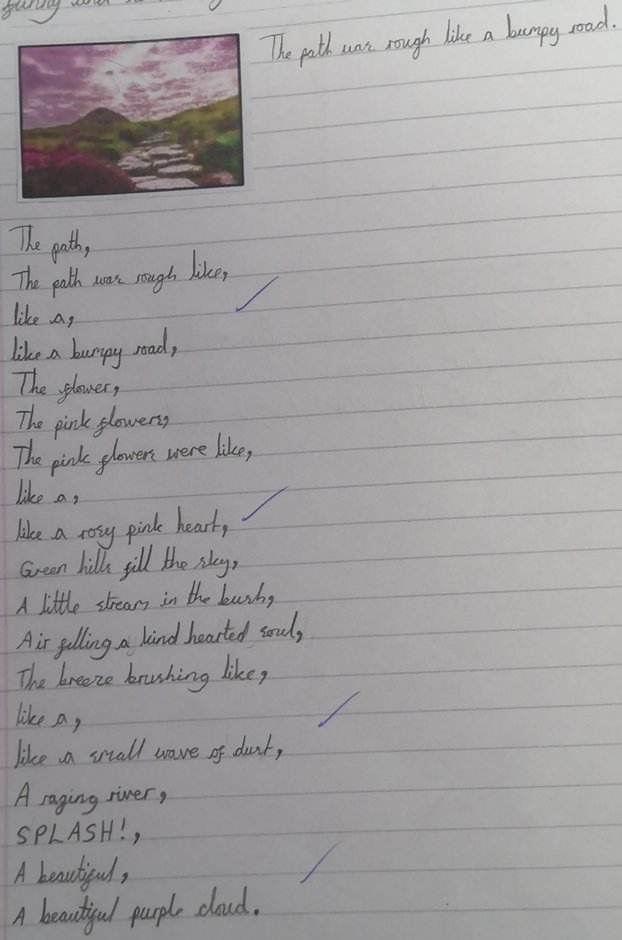 The path was rough like a bumpy road.
The path,
The path was rough like,
like a,
like a bumpy road,
The flower,
The pink flowers,
The pink flowers were like,
like a,
like a rosy pink heart,
Green hills fill the sky,
A little stream in the bush,
Air filling a kind hearted soul,
The breeze brushing like,
like a,
like a small wave of dust,
A raging river,
SPLASH!,
A beautiful,
A beautiful purple cloud.